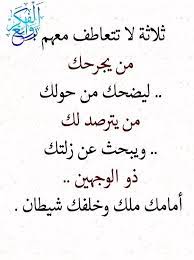 ثلاثة لا تتعاطف معهم
من يجرحك
.. ليضحك من حولك
من يترصد لك
.. ويبحث عن زلتك
ذو الوجهين ..
أمامك ملك وخلفك شيطان .